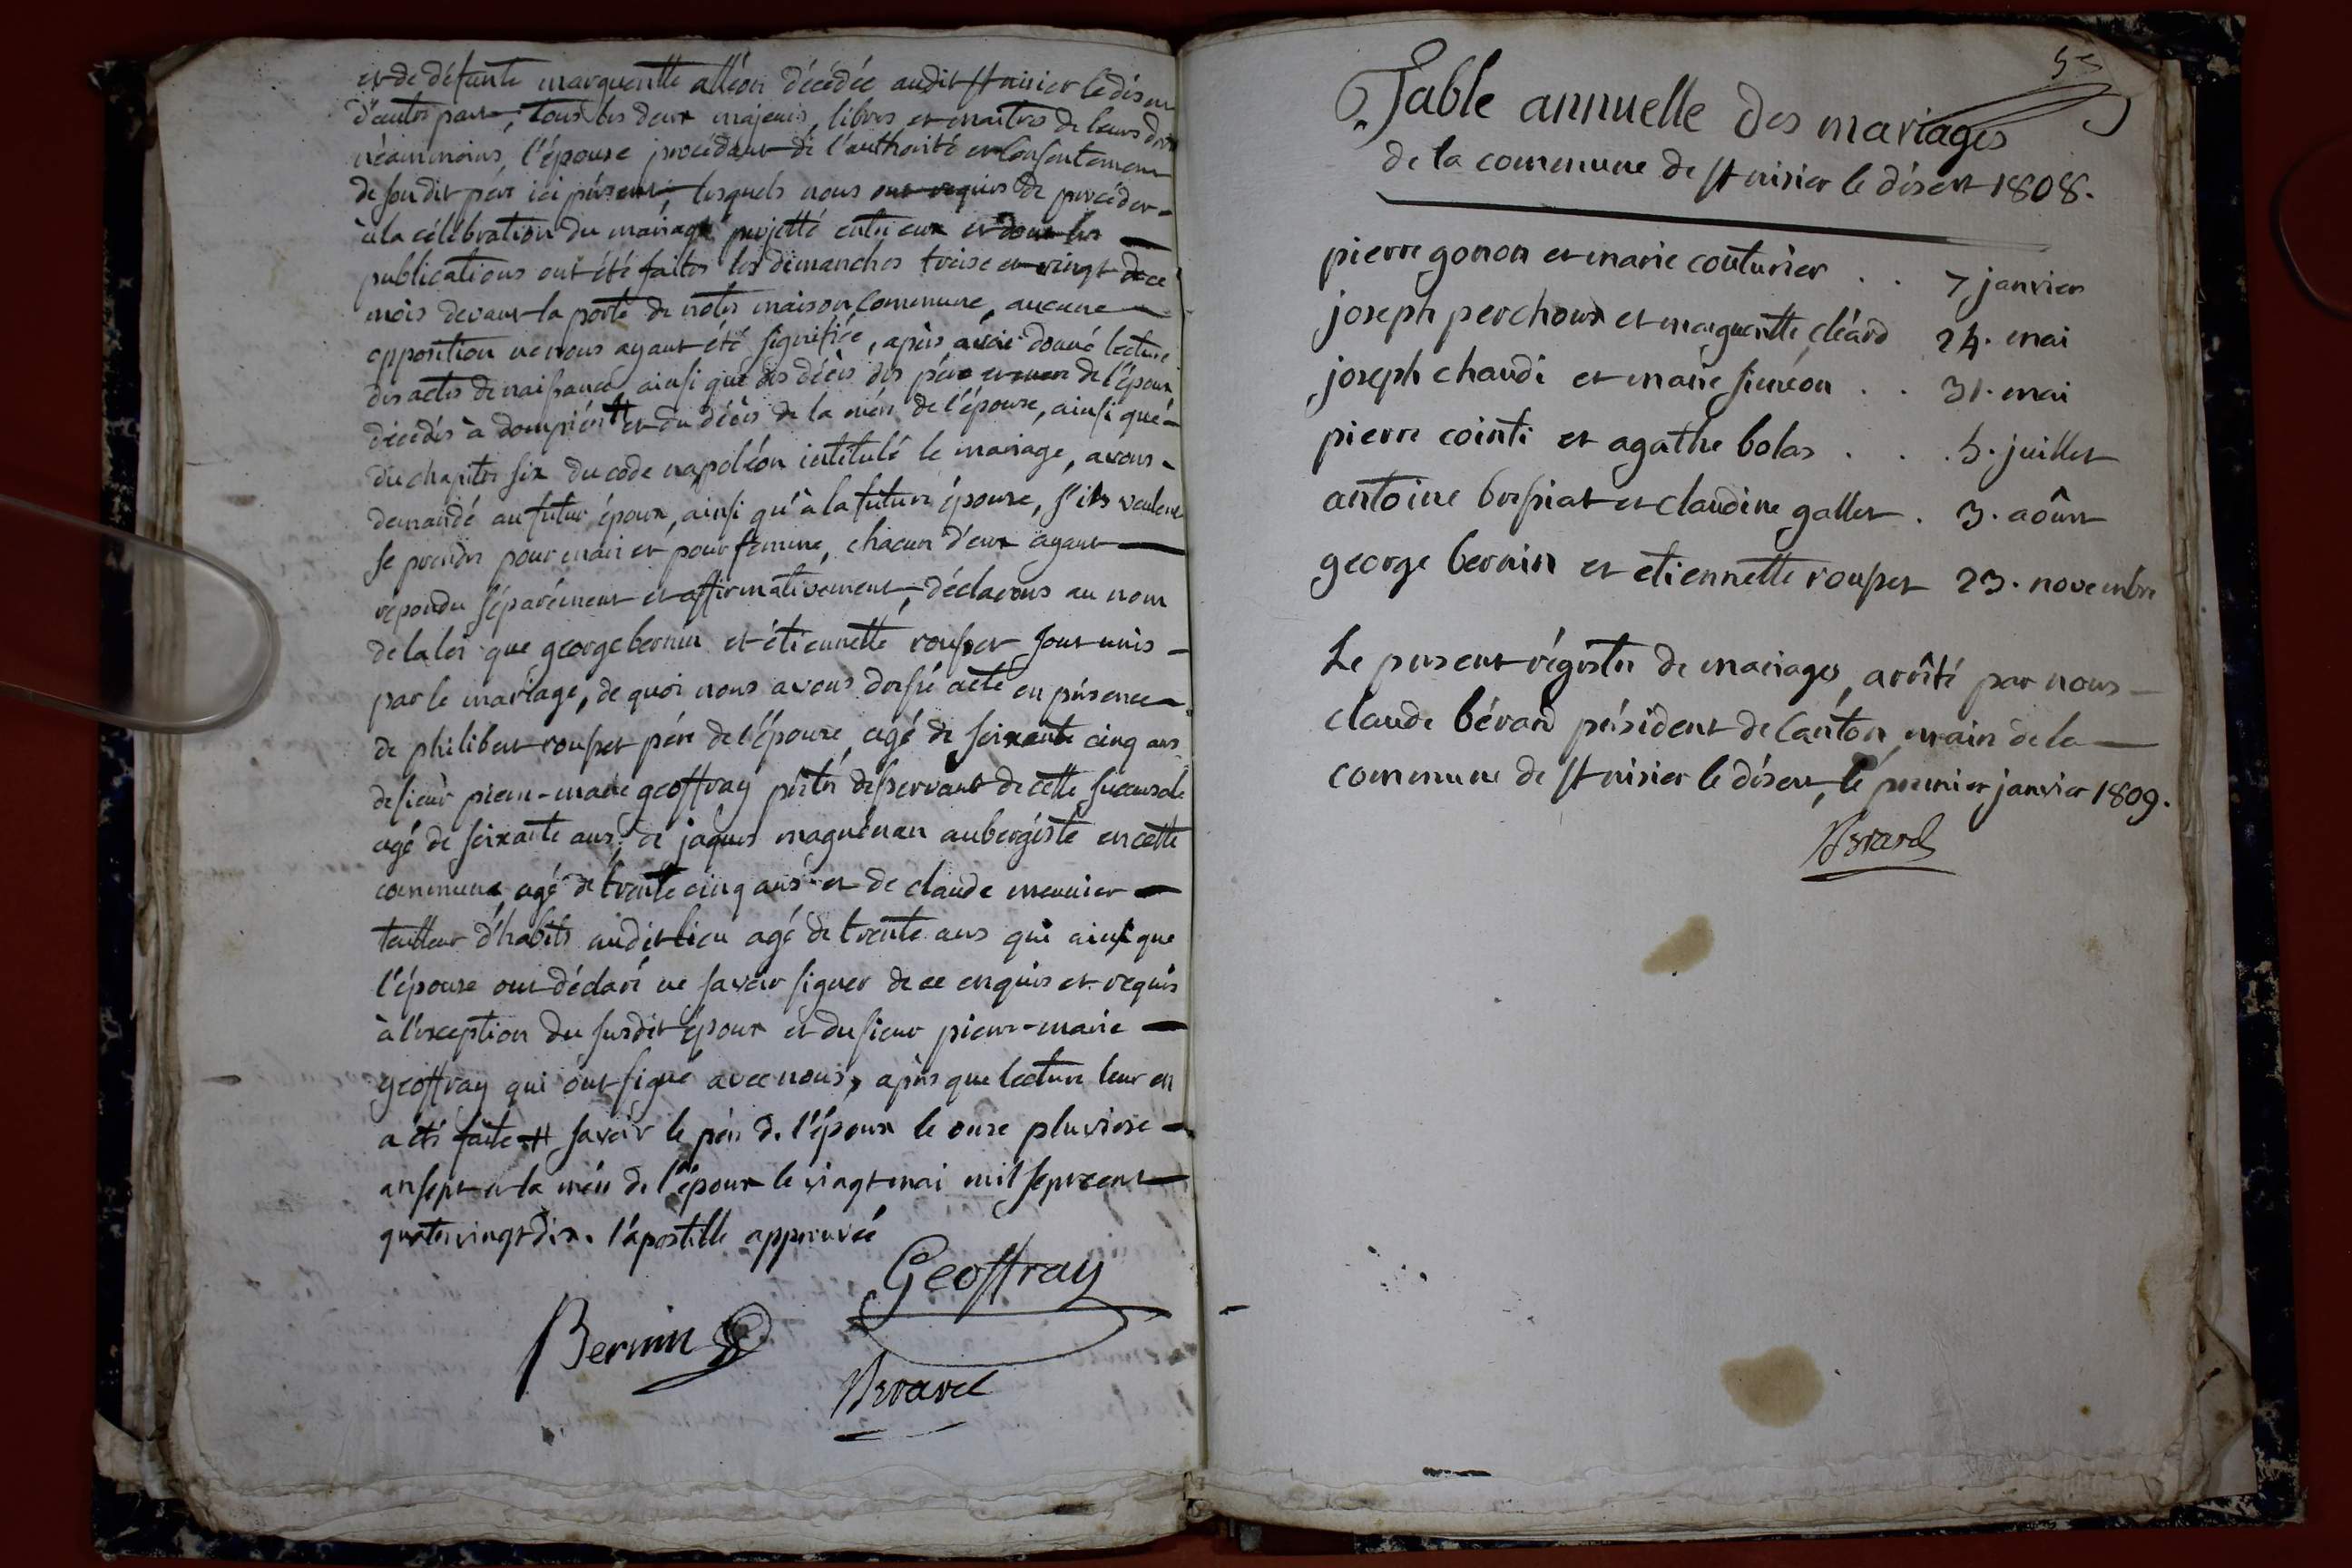 et de défunte marguerittte alléon décédée audit St nisier le désert
d'autre part, tous les deux majeurs, libres et maîtres de leurs droits
néammoins, l'épouse procédant de l'authorité et consentement
de son dit père ici présent; lesquels nous ont requis de procéder
à la célébration du mariage projetté entre eux et dont les
publications ont été faites les dimanches treise et vingt de ce
mois devant la porte de notre maison commune, aucune
opposition ne nous ayant été signifiée, après avoir donné lecture
des actes de naissance ainsi que des décès des père et mere de l'époux
décédés à dompière # et du décès de la mère de l'épouse, ainsi que
du chapitre six du code napoléon intitulé le mariage, avons
demandé au futur époux, ainsi qu'à la future épouse, s'ils veulent
se prendre pour mari et pour femme, chacun d'eux ayant
répondu séparément et affirmativement, déclarons au nom
de la loi que george bernin et étiennette rousset sont unis
par le mariage, de quoi nous avons dressé acte en présence
de philibert rousset père de l'épouse, agé de soixante cinq ans
de sieur pierre-marie geoffray prêtre desservant de cette succursale
agé de soixante ans, de jâques maguénan aubergiste en cette
commune agé de trente cinq ans et de claude meunier
tailleur d'habits audit lieu agé de trente ans qui ainsi que
l'épouse ont déclaré ne savoir signer de ce enquis et requis
à l'exception du susdit époux et du sieur pierre-marie
geoffray qui ont signé avec nous, après que lecture leur en
a été faite # savoir le père de l'époux le onze pluviose
an sept et la mère de l'époux le vingt mai mil sept cent
quatrevingt dix. l'apostille approuvée
Geoffray
Bernin
Berard
5
Table annuelle des mariages
de la commune de St nisier le désert 1808.
pierre gonon et marie couturier . . 7 janvier
joseph perchoux et margueritte cléard 24. mai
joseph chaudi et marie siméon . . 31. mai
pierre cointi et agathe bolas . . . 5. juillet
antoine bressiat et claudine gallet . 3. aôust
george bernin et etiennette rousset 23. novembre
Le présent régistre de mariages, arrêté par nous
claude bérard président de canton, maire de la
commune de St nisier le désert, le premier janvier 1809.
Berard